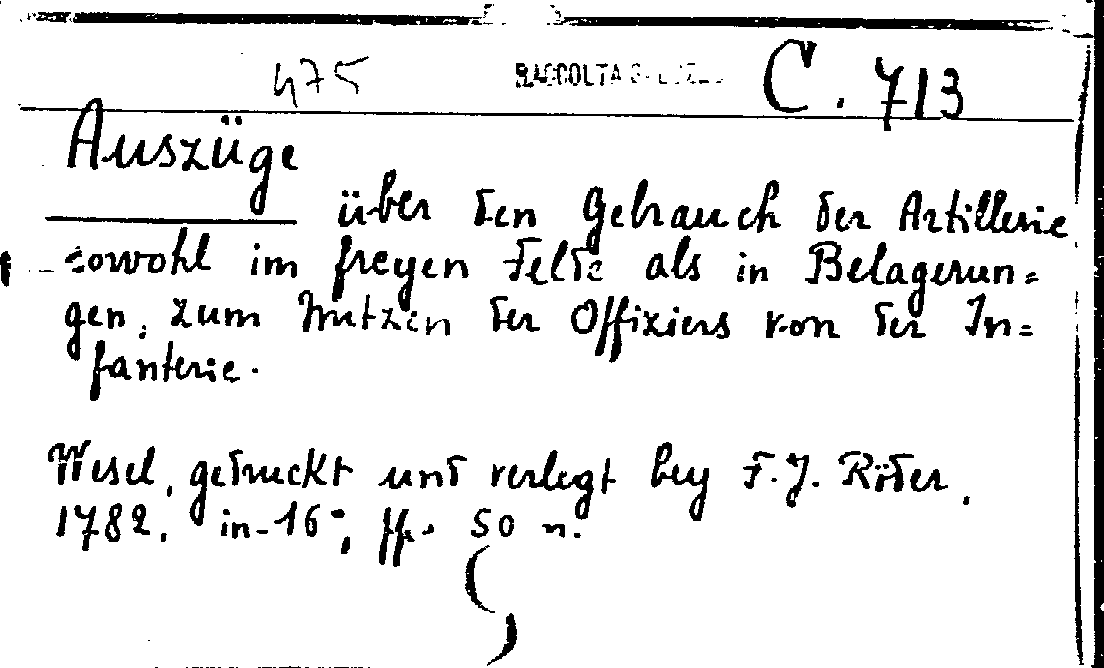 475 RACCOLTA C. 713
Auszüge
über den Gebrauch der Artillerie
sowohl im freyen Felde als in Belagerun=
gen, zum Nutzen der Offiziers von der In=
fanterie.
Wesel, gedruckt und verlegt bey F. J. Röder.
1782. in-16°, ff. 50 n.